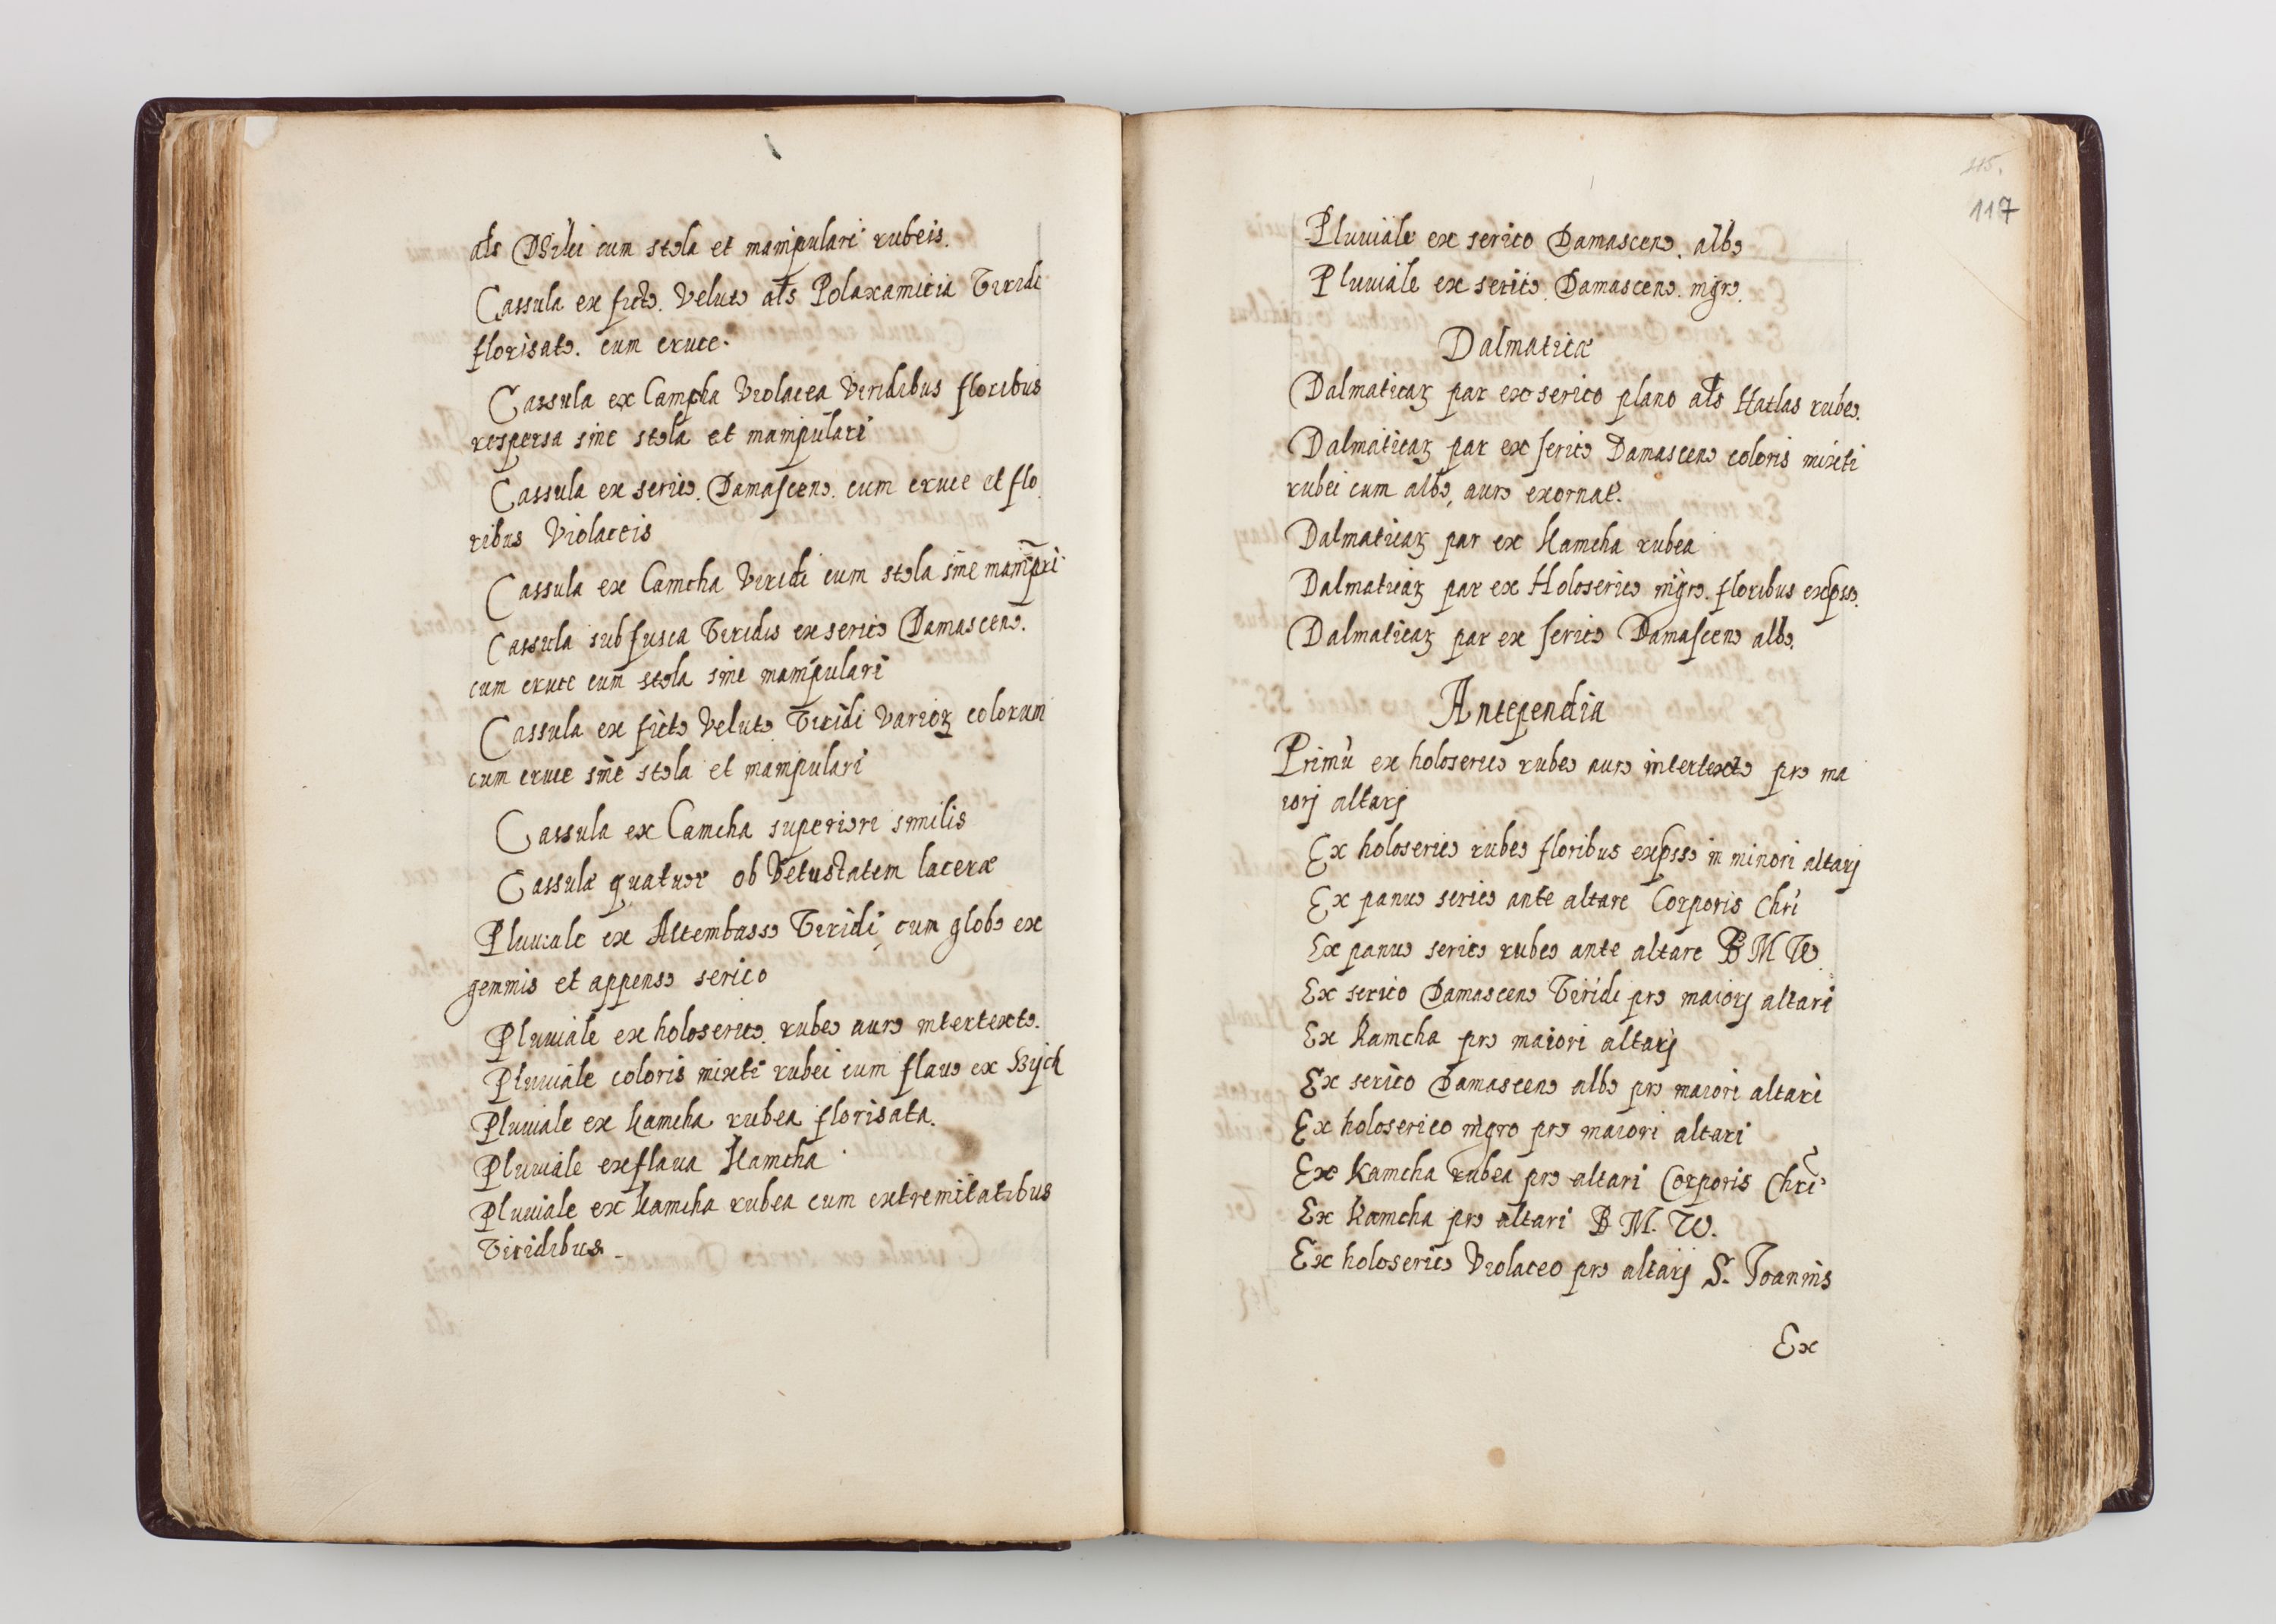 als cum stola et manipulari rubeis.
Cassula ex ficto. Veluto als Polaxamicia Viridi
florisato. cum cruce.
Cassula ex Camcha Violacea Viridibus floribus
respersa sine stola et manipulari
Cassula ex serico. Damasceno. cum cruce et flo
ribus Violaceis
Cassula ex Camcha Viridi cum stola sine manipri
Cassula subfusca Viridis ex serico Damasceno.
cum cruce cum stola sine manipulari
Cassula ex ficto Veluto Viridi varioꝝ colorum
cum cruce sine stola et manipulari
Cassula ex Camcha superiori similis
Cassulæ quatuor ob Vetustatem laceræ
Pluuiale ex Altembasso Viridi cum globo ex
gemmis et appenso serico
Pluuiale ex holoserico. rubeo auro intertexto.
Pluuiale coloris mixti rubei cum flauo ex
Pluuiale ex kamcha rubea florisata.
Pluuiale ex flaua kamcha
Pluuiale ex kamcha rubea cum extremitatibus
Viridibus
115.
117
Pluuiale ex serico Damasceno. albo
Pluuiale ex serico. Damasceno. nigro.
Dalmaticæ
Dalmaticaꝝ par ex serico plano als Hatlas rubeo.
Dalmaticaꝝ par ex serico Damasceno coloris mixti
rubei cum albo, auro exornat.
Dalmaticaꝝ par ex kamcha rubea
Dalmaticaꝝ par ex Holoserico nigro. floribus expsso.
Dalmaticaꝝ par ex serico Damasceno albo.
Antependia
Primù ex holoserico rubeo auro intertexto pro ma
iorj altarj
Ex holoserico rubeo floribus expsso in minori altarj
Ex panno serico ante altare Corporis Chri
Ex panno serico rubeo ante altare B M W.
Ex serico Damasceno Viridi pro maiorj altari
Ex kamcha pro maiori altarj
Ex serico Damasceno albo pro maiori altari
Ex holoserico nigro pro maiori altari
Ex kamcha rubea pro altari Corporis Chri
Ex kamcha pro altari B. M. W.
Ex holoserico Violaceo pro altarj S. Joannis
Ex